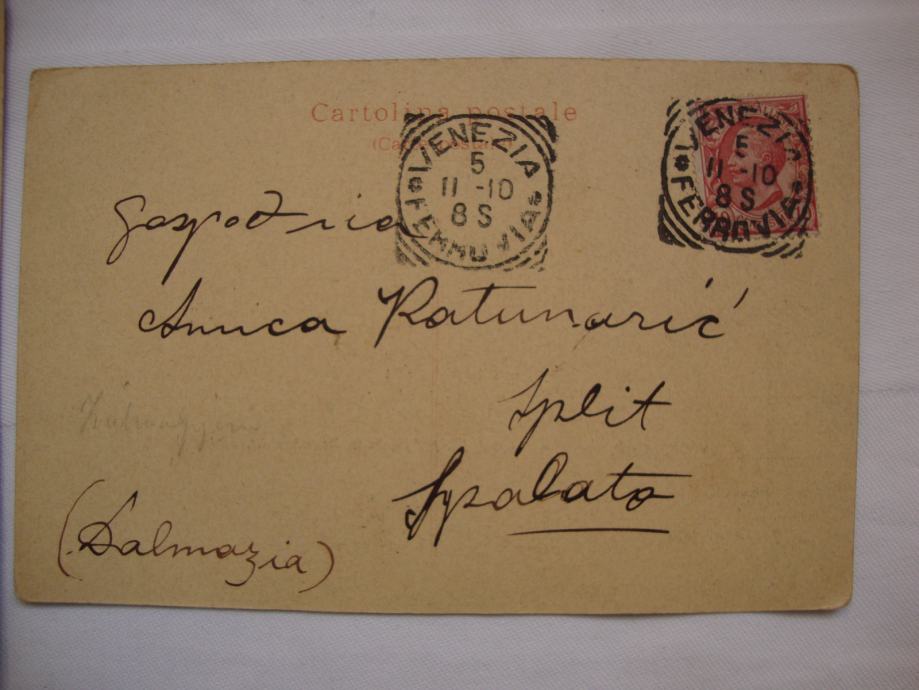 Cartolina postale
VENEZIA
5
11-10
8 S
FERROVIA
VENEZIA
5
11-10
8 S
FERROVIA
Gospođica
Anica Katunarić
Split
Spalato
(Dalmazia)